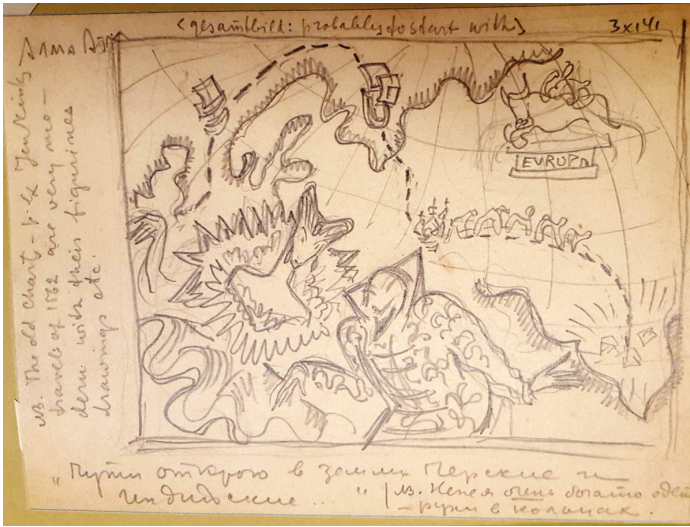 (gesamtbild: probably to start with)
3 X 41
NB. The old Chart – f. ex Jenkins
travels of 1562 are very mo–
dern with their figurines
drawings etc.
EUROPA
„Пути открою в земли Перские и
Индийские... " NB. Непея очень богато одет
– руки в кольцах.